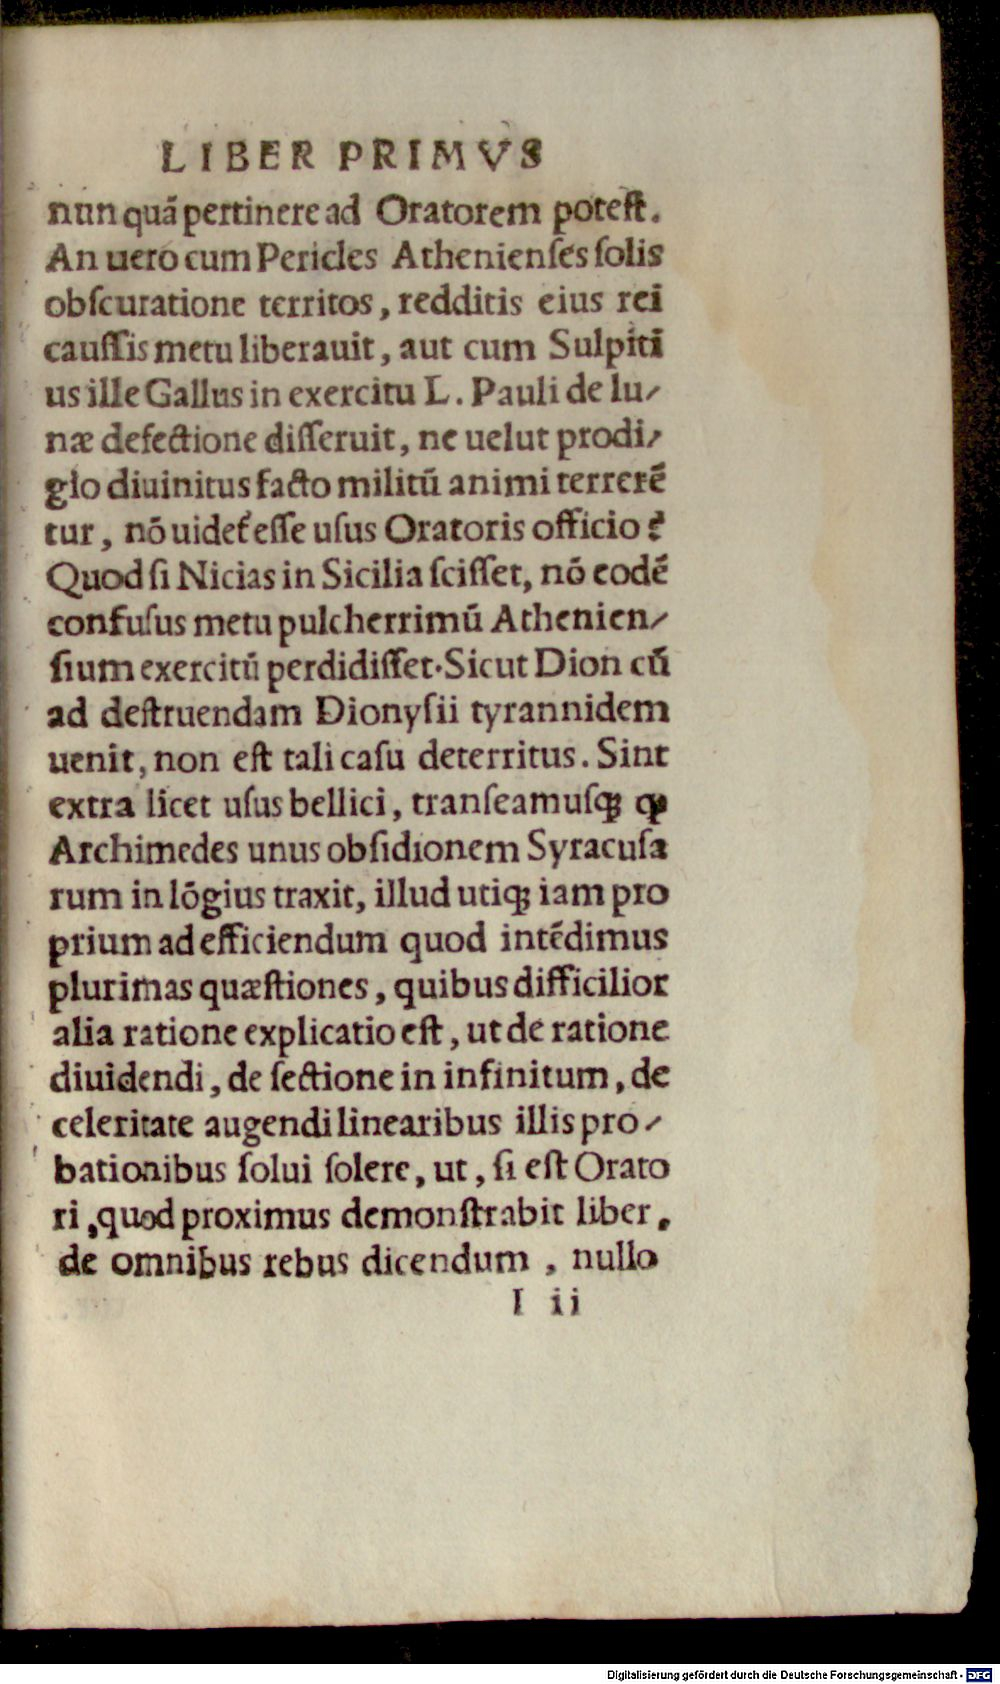 LIBER PRIMVS
nunquã pertinere ad Oratorem poteſt.
An uero cum Pericles Athenienſes ſolis
obſcuratione territos, redditis eius rei
cauſſis metu liberauit, aut cum Sulpiti
us ille Gallus in exercitu L. Pauli de lu⸗
næ defectione diſſeruit, ne uelut prodi⸗
gio diuinitus facto militũ animi terrerẽ
tur, nõ uidet᷑ eſſe uſus Oratoris officio?
Quod ſi Nicias in Sicilia ſciſſet, nõ eodẽ
confuſus metu pulcherrimũ Athenien⸗
ſium exercitũ perdidiſſet. Sicut Dion cũ
ad deſtruendam Dionyſii tyrannidem
uenit, non eſt tali caſu deterritus. Sint
extra licet uſus bellici, tranſeamuſqꝫ ꝙ
Archimedes unus obſidionem Syracuſa
rum in lõgius traxit, illud utiqꝫ iam pro
prium ad efficiendum quod intẽdimus
plurimas quæſtiones, quibus difficilior
alia ratione explicatio eſt, ut de ratione
diuidendi, de ſectione in infinitum, de
celeritate augendi linearibus illis pro⸗
bationibus ſolui ſolere, ut, ſi eſt Orato
ri, quod proximus demonſtrabit liber,
de omnibus rebus dicendum, nullo
I ii
Digitalisierung gefördert durch die Deutsche Forschungsgemeinschaft - DFG